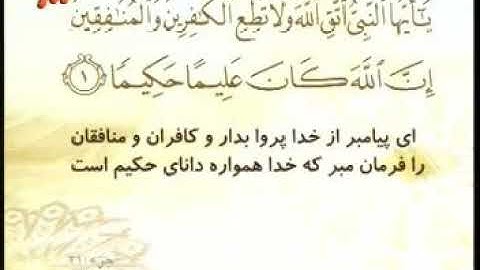 يَـٰٓأَيُّهَا ٱلنَّبِىُّ ٱتَّقِ ٱللَّهَ وَلَا تُطِعِ ٱلْكَـٰفِرِينَ وَٱلْمُنَـٰفِقِينَ
إِنَّ ٱللَّهَ كَانَ عَلِيمًا حَكِيمًا ١
ای پیامبر از خدا پروا بدار و کافران و منافقان
را فرمان مبر که خدا همواره دانای حکیم است
جزء ٢١